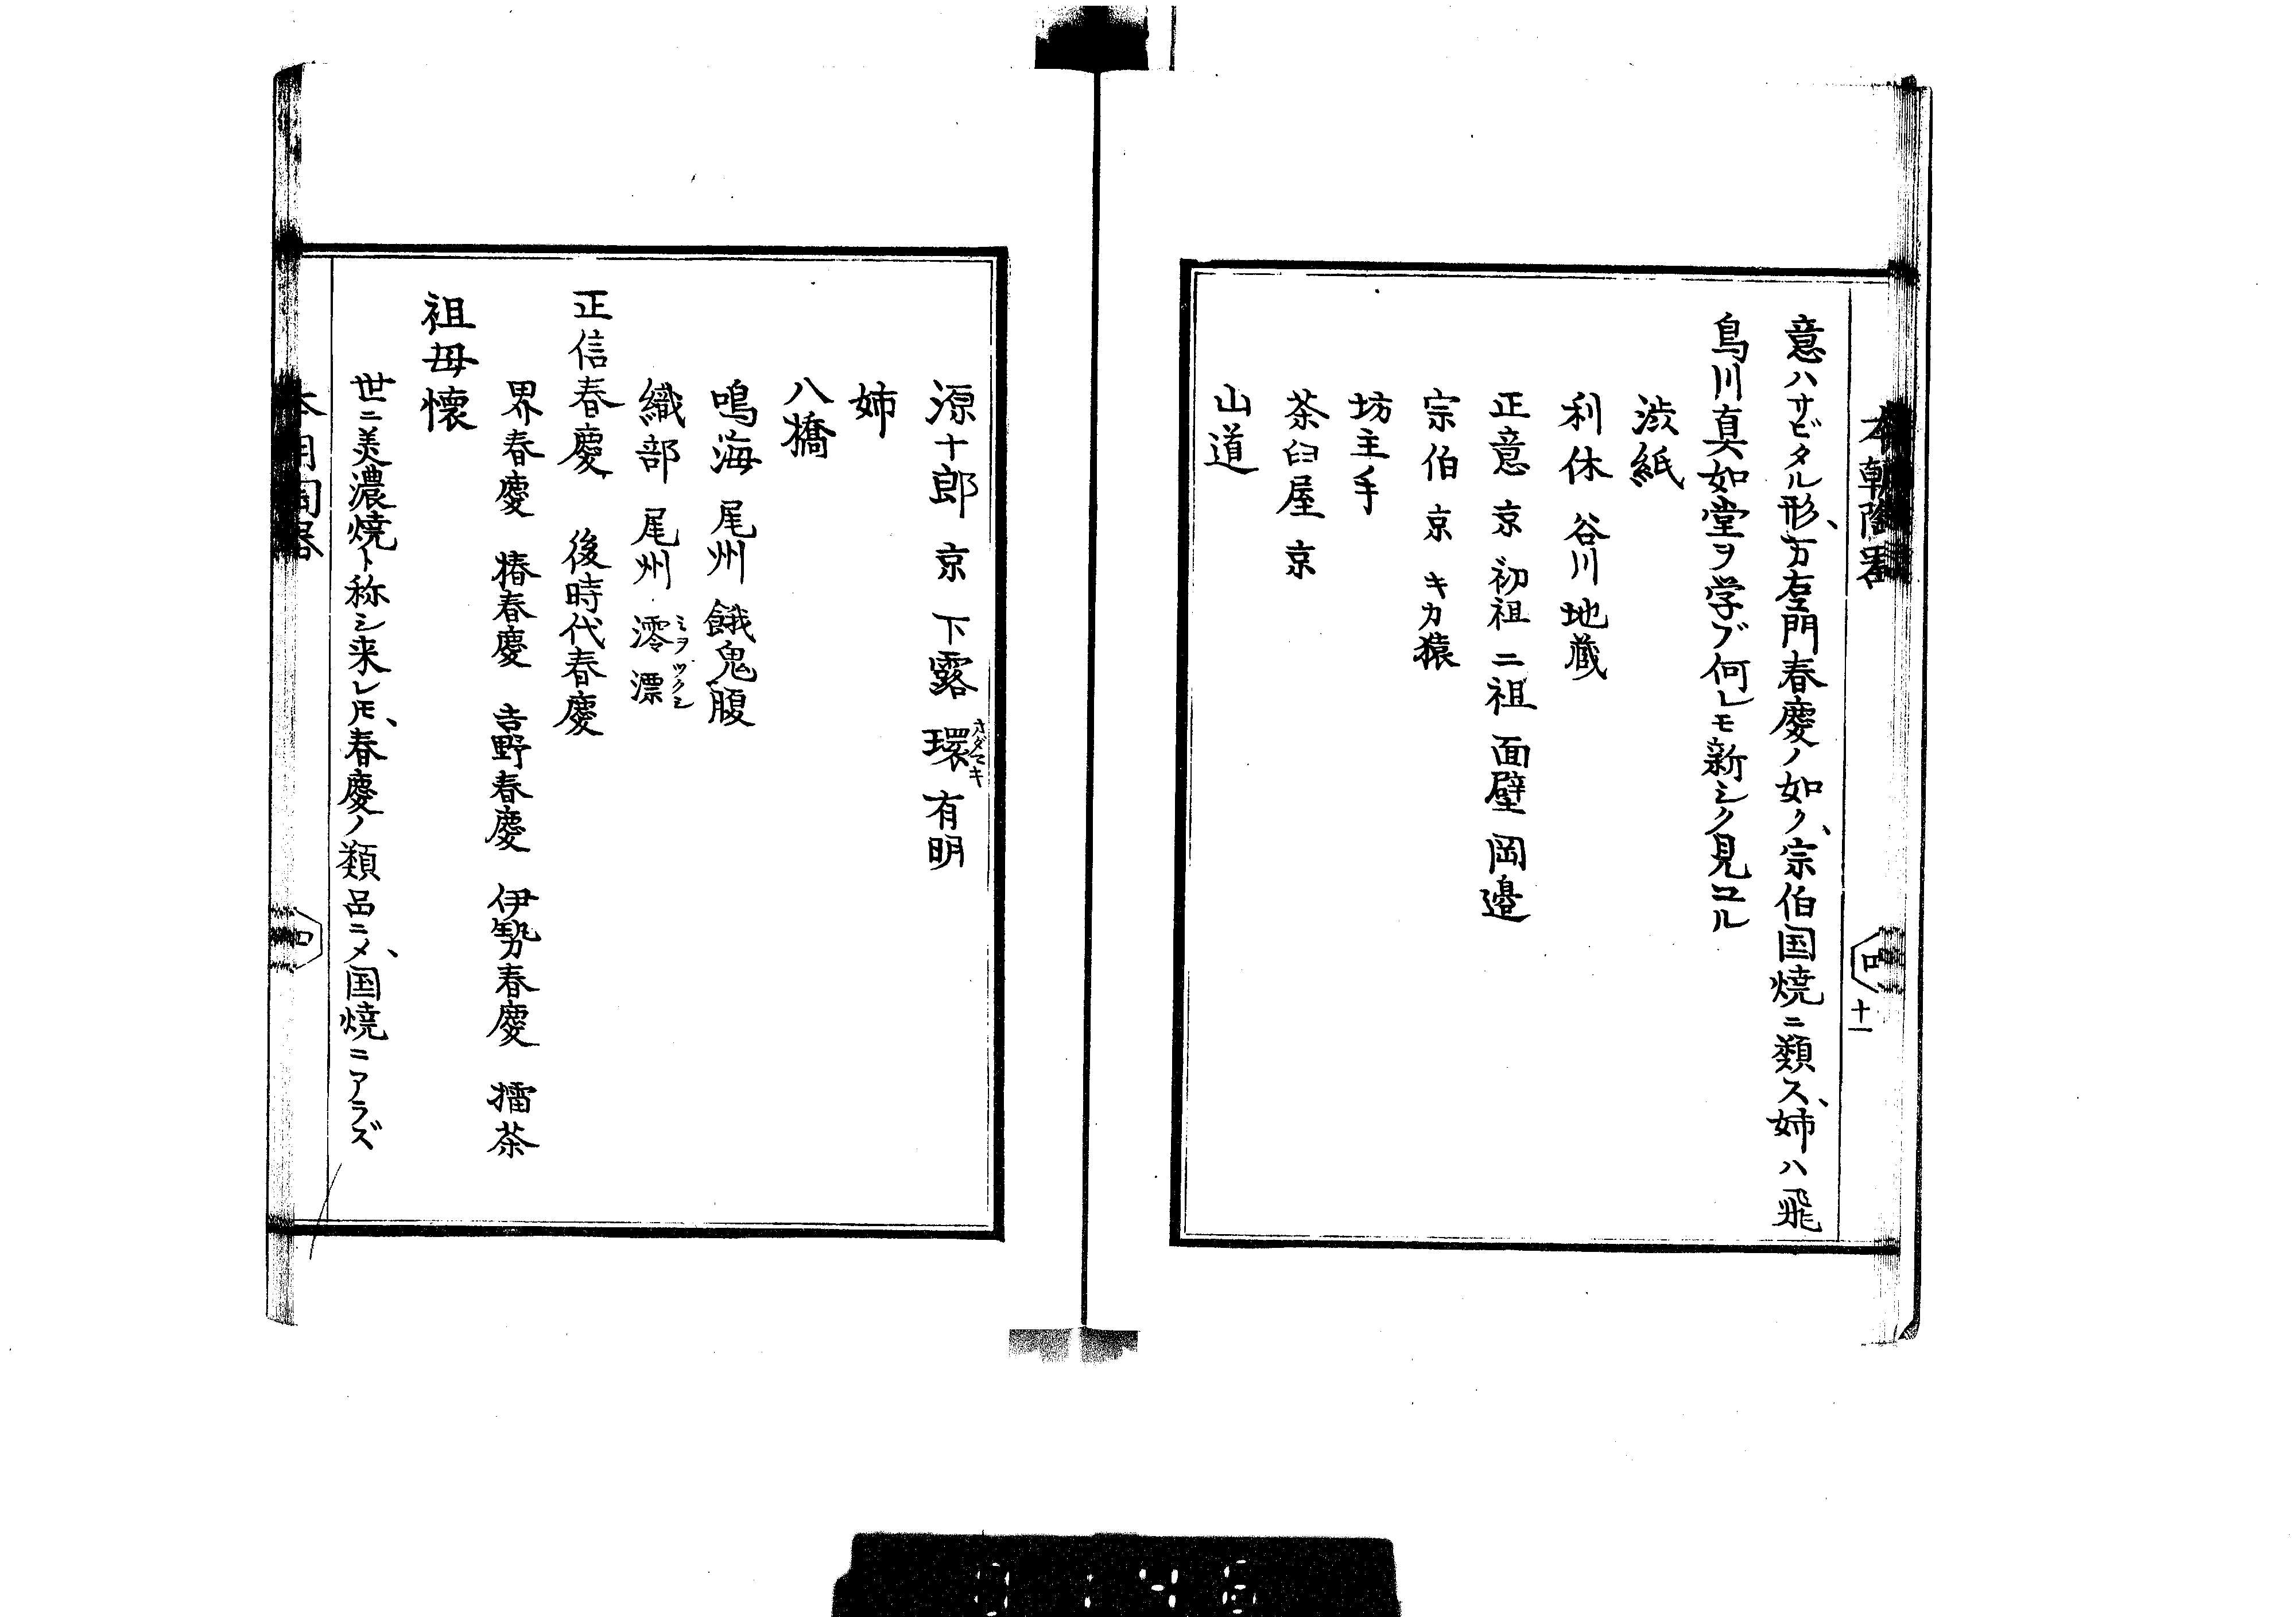 本朝陶器
十一
意ハサビタル形、万右衛門春慶ノ如ク、宗伯国焼ニ類ス、姉ハ飛
鳥川真如堂ヲ学ブ何レモ新シク見ユル
渋紙
利休 谷川 地蔵
正意 京 初祖 二祖 面壁 岡邉
宗伯 京 キカ猿
坊主手
茶臼屋 京
山道
源十郎 京 下露 環 有明
オダマキ
姉
八橋
鳴海 尾州 餓鬼腹
織部 尾州 澪漂
ミヲツクシ
正信春慶 後時代春慶
界春慶 椿春慶 吉野春慶 伊勢春慶 擂茶
祖母懐
世ニ美濃焼ト称シ来レ𪜈、春慶ノ類品ニ〆、国焼ニアラズ